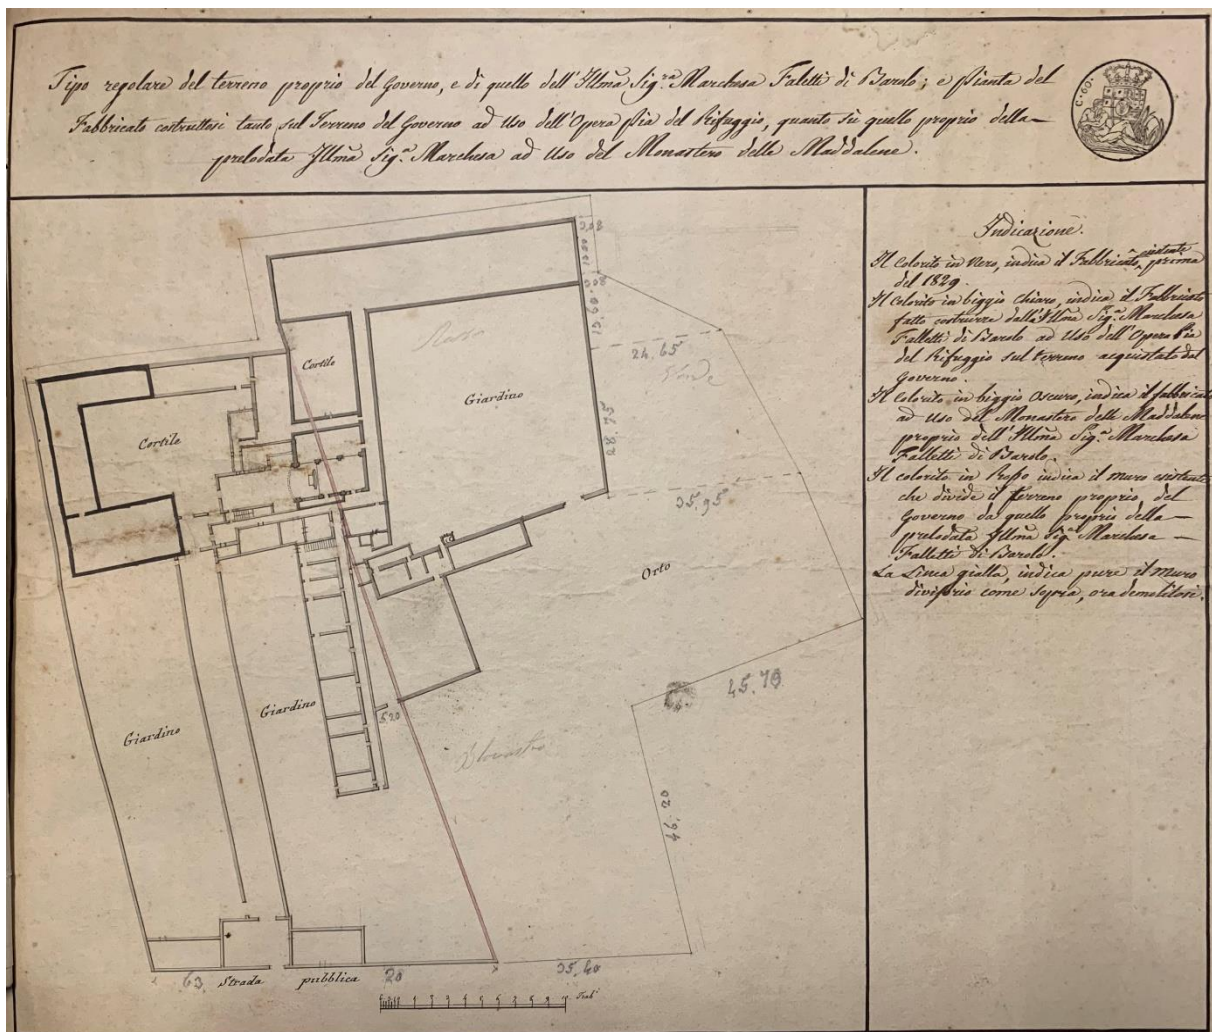 Tipo regolare del terreno proprio del Governo, e di quello dell'Illma Sig.ra Marchesa Faletti di Barolo; e Pianta del
Fabbricato costruttosi tanto sul Terreno del Governo ad Uso dell'Opera Pia del Rifuggio, quanto su quello proprio della
prelodata Illma Sig.a Marchesa ad Uso del Monastero delle Maddalene.
C. 60.
Indicazione.
Il Colorito in Nero, indica il Fabbricato esistente prima
del 1829.
Il Colorito in biggio chiaro, indica il Fabbricato
fatto costrurre dall'Illma Sig.a Marchesa
Falletti di Barolo ad Uso dell'Opera Pia
del Rifuggio sul terreno acquistato dal
Governo.
Il Colorito in biggio oscuro, indica il fabbricato
ad uso del Monastero delle Maddalene
proprio dell'Illma Sig.a Marchesa
Falletti di Barolo.
Il colorito in Rosso indica il muro esistente
che divide il Terreno proprio del
Governo da quello proprio della
prelodata Illma Sig.a Marchesa
Falletti di Barolo.
La Linea gialla, indica pure il Muro
divisorio come sopra, ora demolitosi.
10.00
15.60
24.65
Cortile
Giardino
28.75
Cortile
35.95
Orto
45.70
Giardino
Giardino
5.20
46.20
63
Strada
pubblica
20
35.40
Trab.